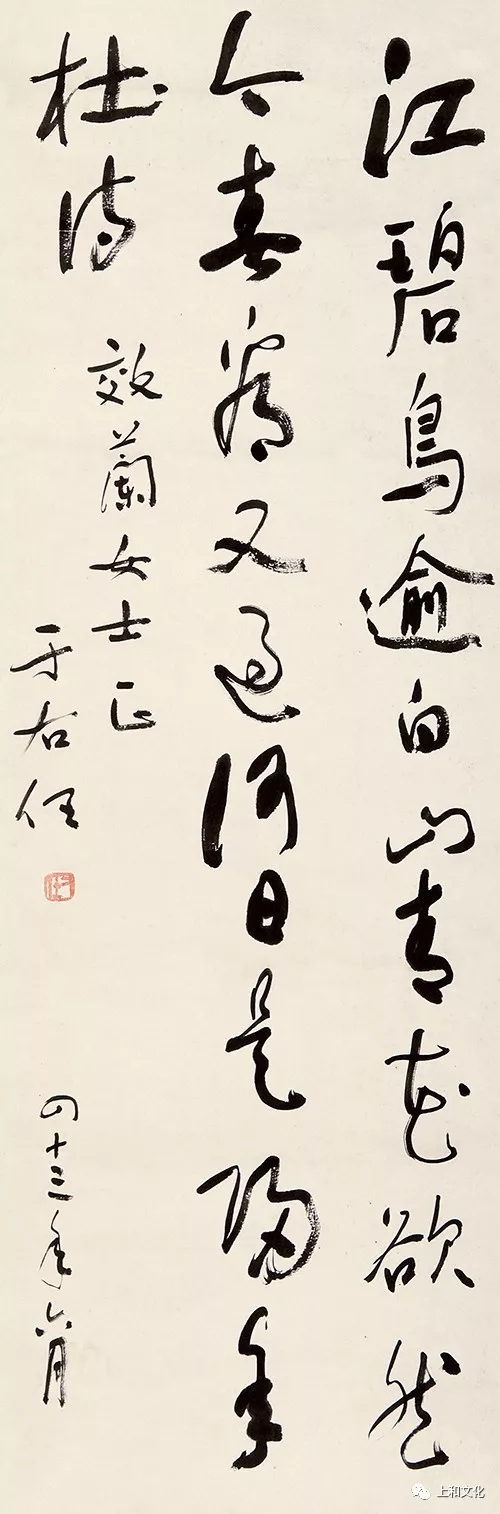 江碧鸟逾白山青花欲然
今春看又过何日是归年
杜诗
效蘭女士正
于右任
四十三年六月
上和文化